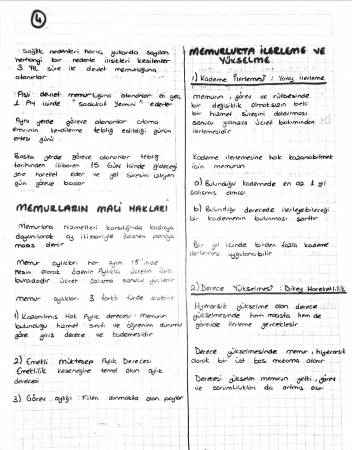 4
Sağlık nedenleri hariç, yukarıda sayılan
herhangi bir nedenle ilişikleri kesilenler
3 YIL süre ile devlet memurluğuna
alınamazlar
Asli devlet memurluğuna atananlar en geç
1 AY içinde "Sadakat Yemini" ederler
Aynı yerde göreve atananlar atama
emrinin kendilerine tebliğ edildiği günün
ertesi günü
Başka yerde göreve atananlar tebliğ
tarihinden itibaren 15 GÜN içinde gideceği
yere hareket eder ve yol süresini izleyen
gün göreve başlar
MEMURLARIN MALİ HAKLARI
Memurlara hizmetleri karşılığında kadroya
dayanılarak ay itibariyle ödenen paraya
maaş denir
Memur aylıkları her ayın 15'inde
Peşin olarak ödenir Aylıkla ücretin farkı
buradadır Ücret çalışma sonucu
Memur aylıkları 3 farklı türde olabilir
1) Kazanılmış Hak Aylık derecesi: Memurun
bulunduğu hizmet sınıfı ve öğrenim durumu
göre giriş derece ve kademesidir
2) Emekli müktesep Aylık Derecesi
Emeklilik keseneğine temel olan aylık
derecesi
3) Görev aylığı: Fiilen alınmakta olan
MEMURLUKTA İLERLEME VE
YÜKSELME
1) Kademe İlerlemesi: Yatay ilerleme
memurun, görev ve rütbesinde
bir değişiklik olmaksızın belli
bir hizmet süresini doldurması
sonucu yalnızca ücret bakımından
ilerlemesidir
Kademe ilerlemesine hak kazanabilmek
için memurun
a) Bulunduğu kademede en az 1 yıl
çalışmış olması
b) Bulunduğu derecede ilerleyebileceği
bir kademenin bulunması şarttır
Bir yıl içinde birden fazla kademe
ilerlemesi uygulanabilir
2) Derece Yükselmesi: Dikey Hareketlilik
Hiyerarşik yükselme olan derece
yükselmesinde hem maaşta hem de
görevde ilerleme gerçekleşir
Derece yükselmesinde memur, hiyerarşik
olarak bir üst baş makama atanır
Derecesi yükselen memurun yetki, görev
ve sorumlulukları da artmış olur